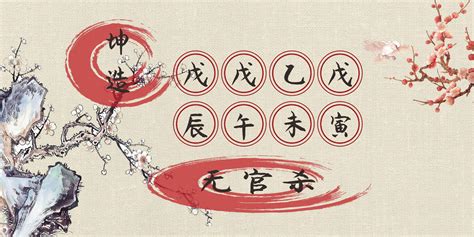 坤造
戊戊乙戊
辰午未寅
无官杀